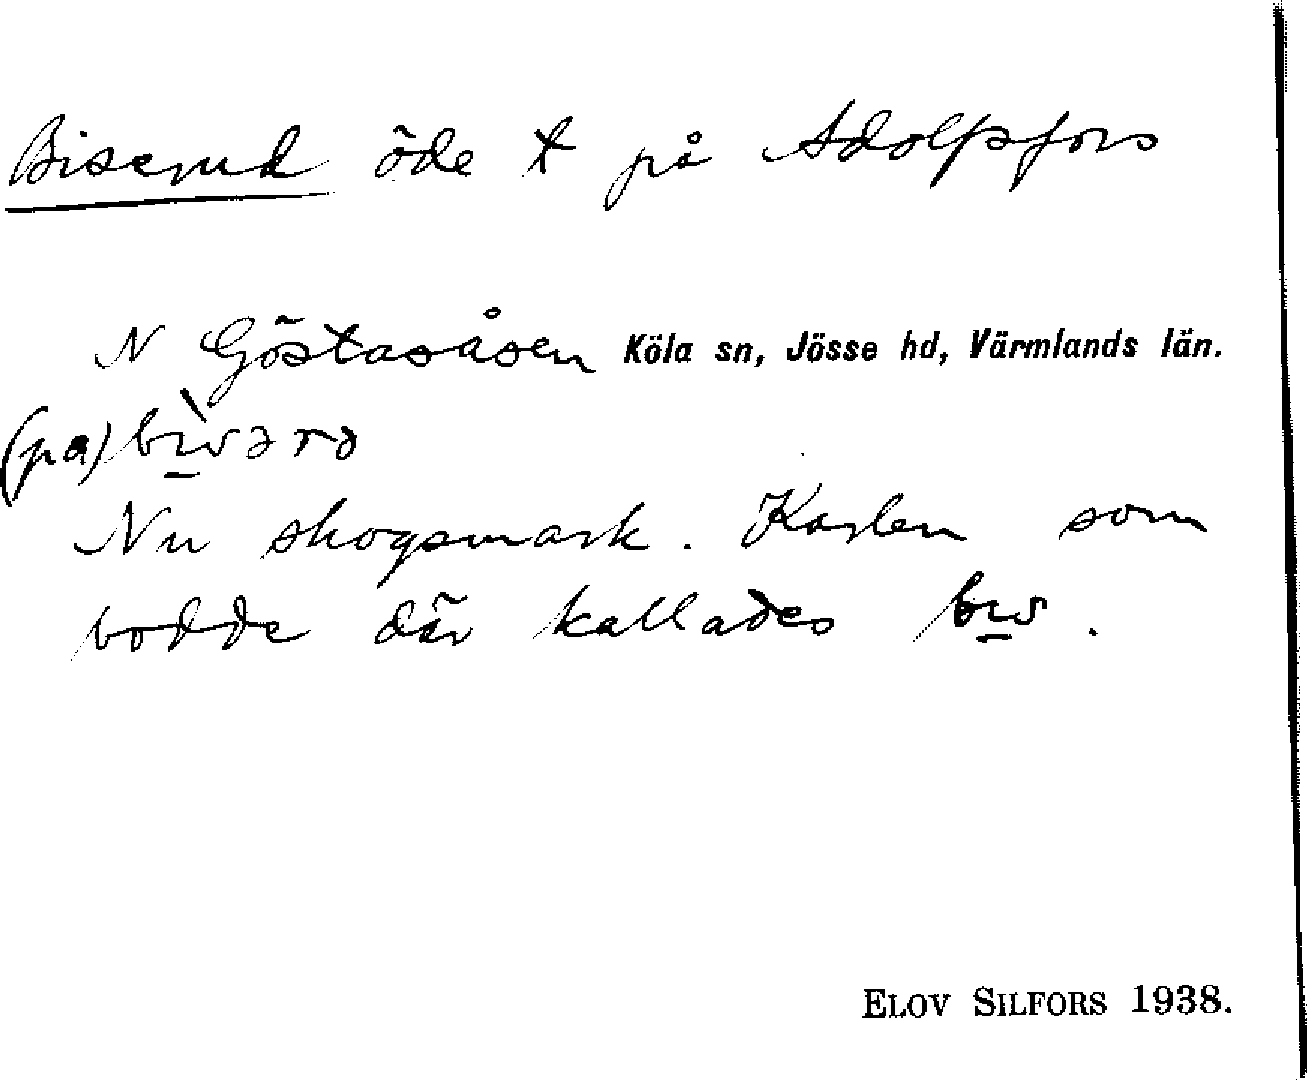 Biserud öde t på Adolfsfors
N Göstasåsen Köla sn, Jösse hd, Värmlands län.
(pa)
Nu skogsmark. Karlen som
bodde där kallades
ELOV SILFORS 1938.